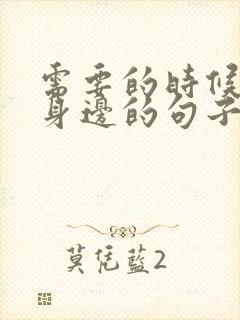 需要的時候
身邊的句子
莫凭藍2